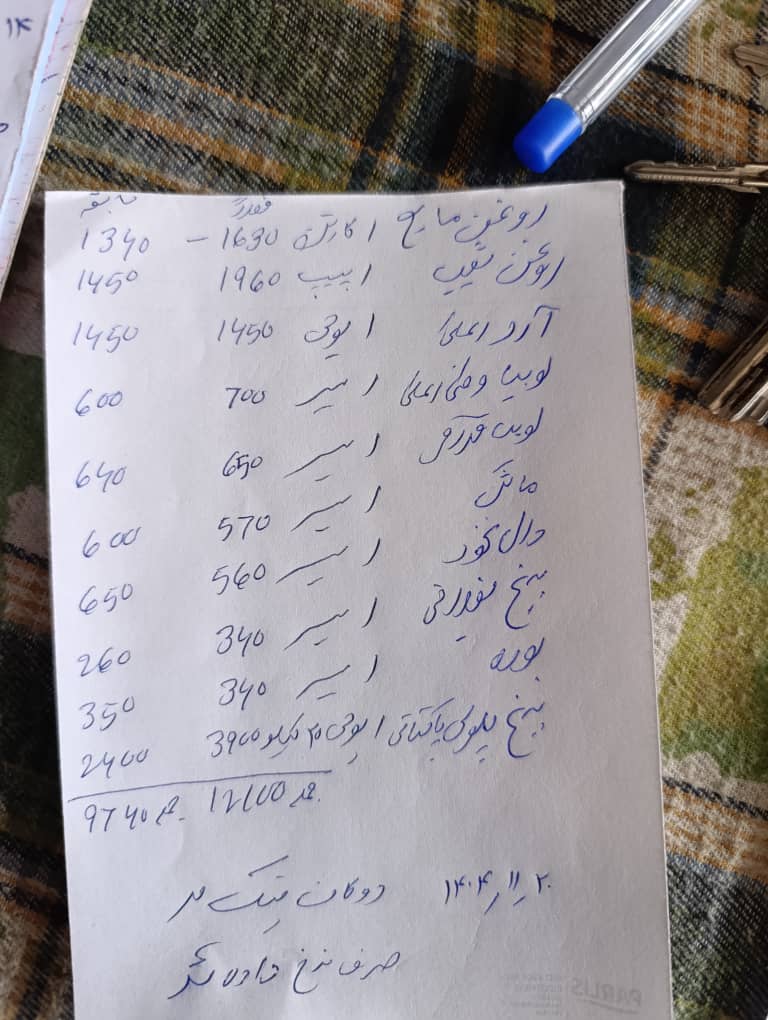 سابقه
روغن مایع ۱ کارتن 1630 – 1340
روغن ۱ پیپ 1960 1450
آرد اعلی ۱ بوجی 1450 1450
لوبیا وطنی اعلی ۱ سیر 700 600
لوبیا ۱ سیر 650 640
ماش ۱ سیر 570 600
دال نخود ۱ سیر 560 650
برنج ۱ سیر 340 260
بوره ۱ سیر 340 350
برنج پلوئی پاکستانی ۱ بوجی ۲۰ کیلو 3900 2400
12100 9740
۱۴۰۴,۱۱,۲۰ دوکان
صرف نرخ داده شد
PARLIS